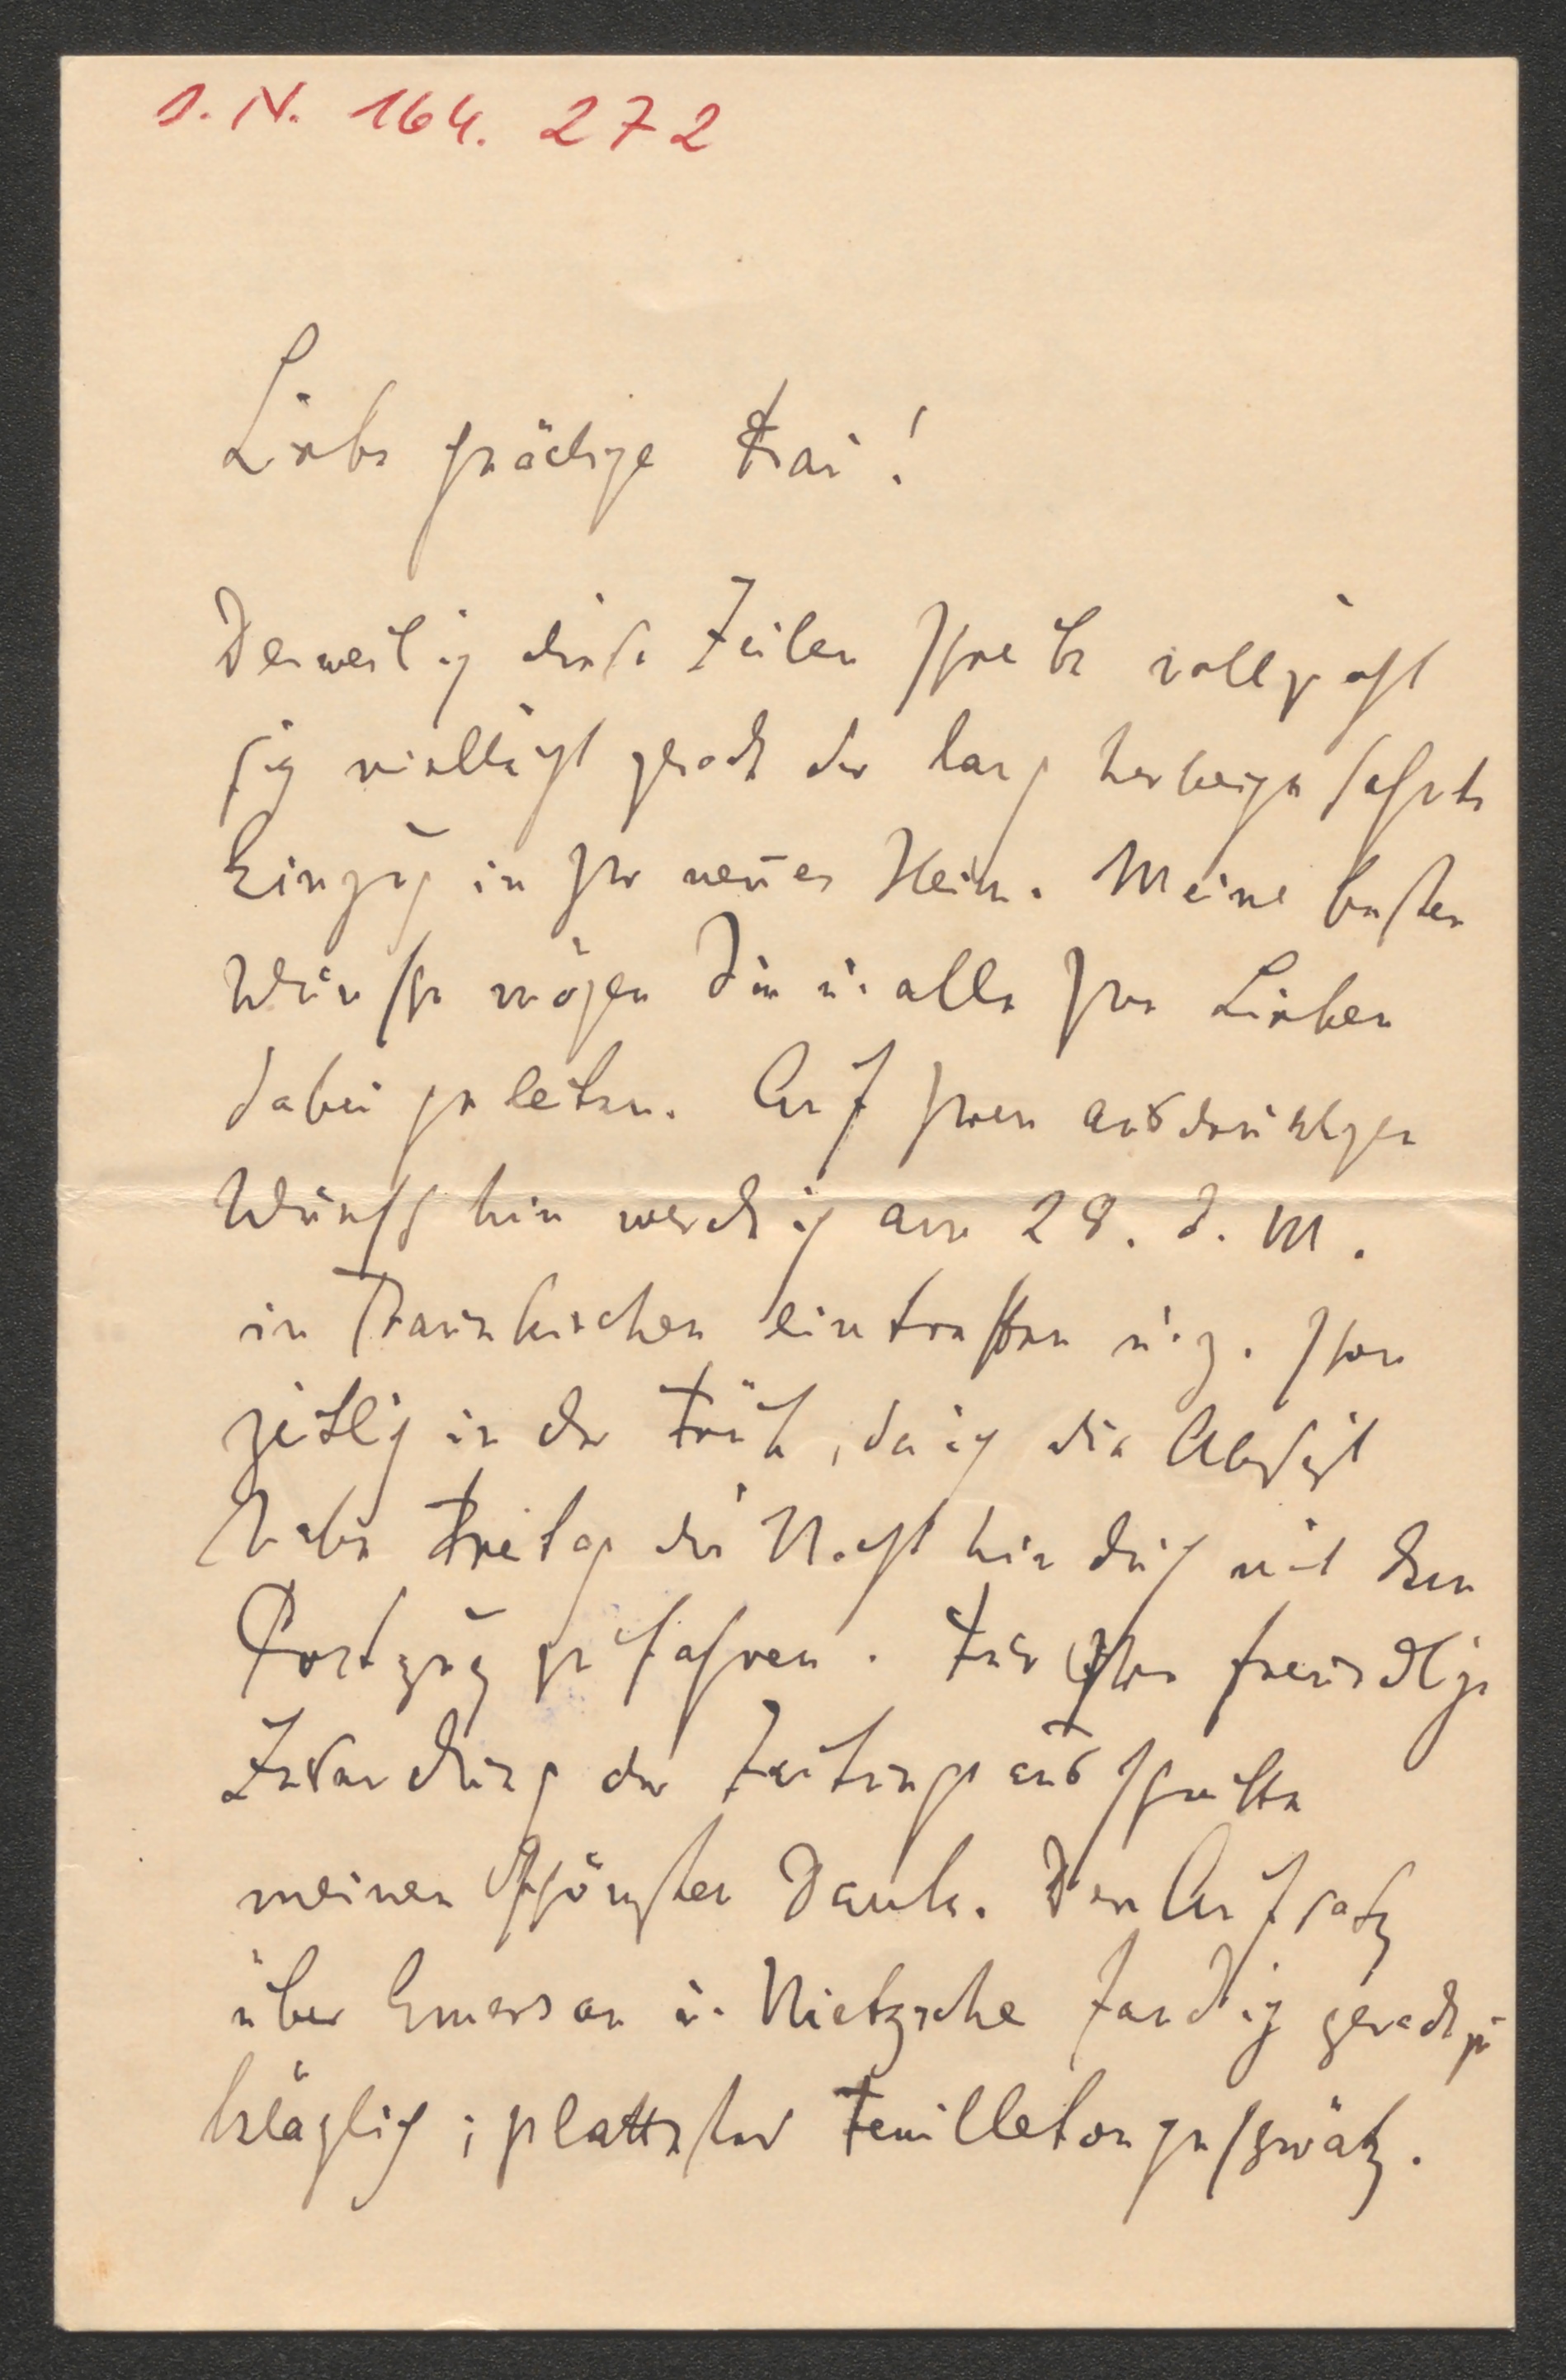 I. N. 164. 272
Liebe gnädige Frau!
Derweil ich diese Zeilen schreibe vollzieht
sich vielleicht gerade der lang herbeigesehnte
Einzug in Ihr neues Heim. Meine besten
Wünsche mögen Sie u. alle Ihre Lieben
dabei geleiten. Auf Ihren ausdrücklichen
Wunsch hin werde ich am 28. d. M.
in Traunkirchen eintreffen u. z. schon
zeitlich in der Früh, da ich die Absicht
habe Freitag die Nacht hindurch mit dem
Postzug zu fahren. Für Ihre freundliche
Zusendung der Zeitungsausschnitte
meinen schönsten Dank. Den Aufsatz
über Emerson u. Nietzsche fand ich geradezu
kläglich; plattestes Feuilletongeschwätz.